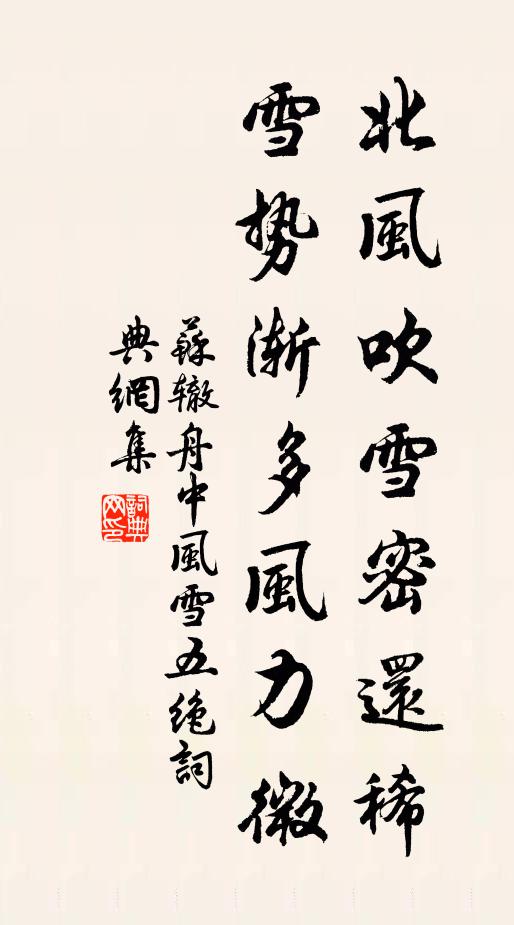 北風吹雪密還稀
雪勢漸多風力微
蘇轍舟中風雪五绝詞
典網集
詞典網印